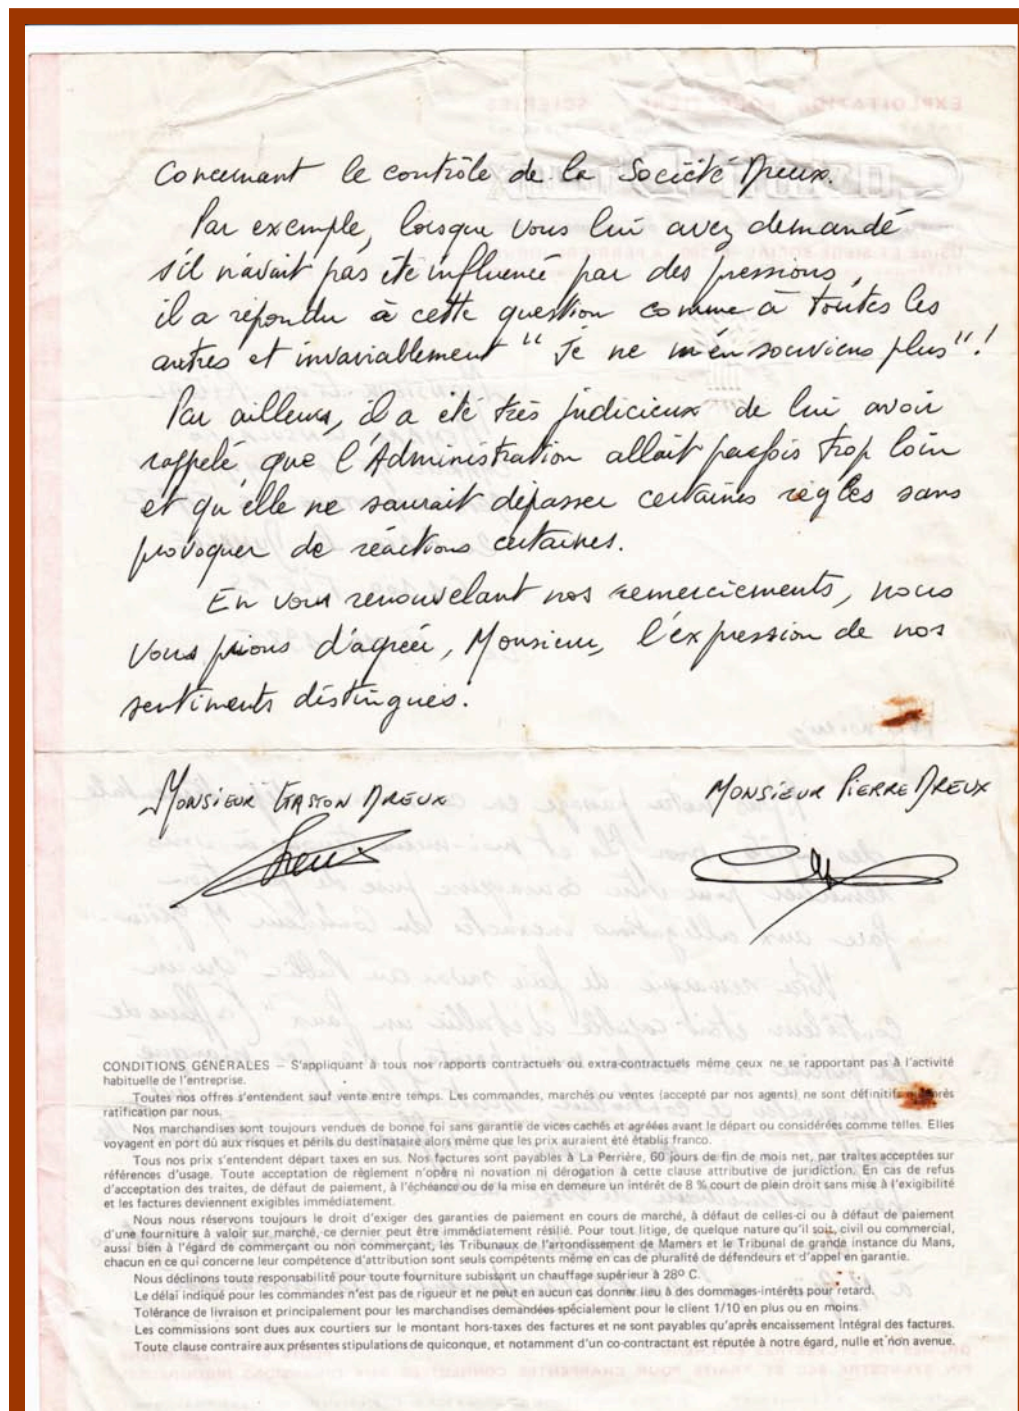 Concernant le contrôle de la Société Dreux.
Par exemple, lorsque vous lui avez demandé
s'il n'avait pas été influencé par des pressions,
il a répondu à cette question comme à toutes les
autres et invariablement "Je ne m'en souviens plus"!
Par ailleurs, il a été très judicieux de lui avoir
rappelé que l'Administration allait parfois trop loin
et qu'elle ne saurait dépasser certaines règles sans
provoquer de réactions certaines.
En vous renouvelant nos remerciements, nous
vous prions d'agréer, Monsieur, l'expression de nos
sentiments distingués.
MONSIEUR GASTON DREUX
MONSIEUR PIERRE DREUX
CONDITIONS GÉNÉRALES – S'appliquant à tous nos rapports contractuels ou extra-contractuels même ceux ne se rapportant pas à l'activité
habituelle de l'entreprise.
Toutes nos offres s'entendent sauf vente entre temps. Les commandes, marchés ou ventes (accepté par nos agents) ne sont définitifs
ratification par nous.
Nos marchandises sont toujours vendues de bonne foi sans garantie de vices cachés et agréées avant le départ ou considérées comme telles. Elles
voyagent en port dû aux risques et périls du destinataire alors même que les prix auraient été établis franco.
Tous nos prix s'entendent départ taxes en sus. Nos factures sont payables à La Perrière, 60 jours de fin de mois net, par traites acceptées sur
références d'usage. Toute acceptation de règlement n'opère ni novation ni dérogation à cette clause attributive de juridiction. En cas de refus
d'acceptation des traites, de défaut de paiement, à l'échéance ou de la mise en demeure un intérêt de 8 % court de plein droit sans mise à l'exigibilité
et les factures deviennent exigibles immédiatement.
Nous nous réservons toujours le droit d'exiger des garanties de paiement en cours de marché, à défaut de celles-ci ou à défaut de paiement
d'une fourniture à valoir sur marché, ce dernier peut être immédiatement résilié. Pour tout litige, de quelque nature qu'il soit, civil ou commercial,
aussi bien à l'égard de commerçant ou non commerçant, les Tribunaux de l'arrondissement de Mamers et le Tribunal de grande instance du Mans,
chacun en ce qui concerne leur compétence d'attribution sont seuls compétents même en cas de pluralité de défendeurs et d'appel en garantie.
Nous déclinons toute responsabilité pour toute fourniture subissant un chauffage supérieur à 28º C.
Le délai indiqué pour les commandes n'est pas de rigueur et ne peut en aucun cas donner lieu à des dommages-intérêts pour retard.
Tolérance de livraison et principalement pour les marchandises demandées spécialement pour le client 1/10 en plus ou en moins.
Les commissions sont dues aux courtiers sur le montant hors-taxes des factures et ne sont payables qu'après encaissement intégral des factures.
Toute clause contraire aux présentes stipulations de quiconque, et notamment d'un co-contractant est réputée à notre égard, nulle et non avenue.